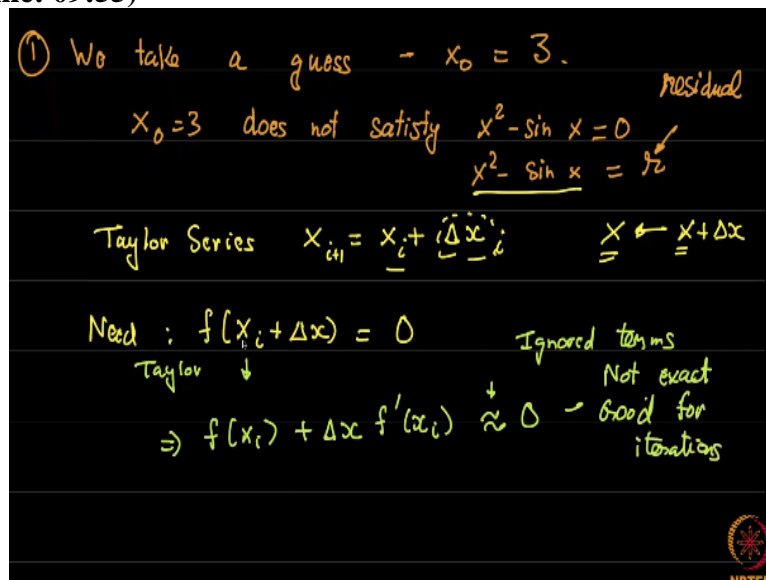 ① We take a guess - x₀ = 3.
residual
x₀ = 3 does not satisfy x² - sin x = 0
x² - sin x = r
Taylor Series xᵢ₊₁ = xᵢ + Δxᵢ x ← x + Δx
Need : f(xᵢ + Δx) = 0
Ignored terms
Taylor ↓
Not exact
⇒ f(xᵢ) + Δx f'(xᵢ) ≈ 0 - Good for
iterations